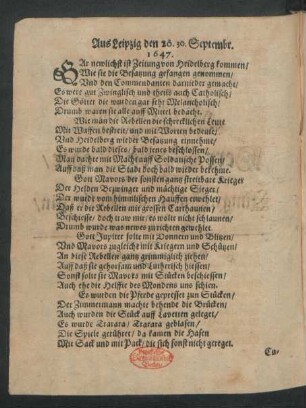 Aus Leipzig den 20. 30. Septembr.
1647.
GAr newlichst ist Zeitung von Heidelberg kommen/
Wie sie die Besatzung gefangen genommen/
Und den Commendanten darnieder gemacht;
Es were gut Zwinglisch und theils auch Catholisch/
Die Götter die wurden gar sehr Melancholisch/
Drumb waren sie alle auff Mittel bedacht.
Wie man die Rebellen die schreckliche Leute
Mit Waffen bestreit/ und mit Worten bedeute/
Und Heidelberg wieder Besatzung einnehme/
Es wurde bald dieses/ bald jenes beschlossen/
Man dachte mit Macht auff Soldatische Possen/
Auff daß man die Stadt doch bald wieder bekehme.
Gott Mavors der sonsten gantz streitbare Krieger
Der Helden Bezwinger und mächtige Sieger/
Der wurde vom himmlischen Hauffen erwehlet/
Daß er die Rebellen mit grossen Carthaunen/
Beschiesse/ doch traw mir/ es wolte nicht schlaunen/
Drumb wurde was newes zu richten gewehlet.
Gott Jupiter solte mit Donnern und Blitzen/
Und Mavors zugleich mit Kriegern und Schützen/
An diese Rebellen gantz grimmiglich ziehen/
Auff daß sie gehorsam und Lutherisch hiessen/
Sonst solte sie Mavors mit Stücken beschiessen/
Auch ehe die Helffte des Mondens uns schien.
Es wurden die Pferde gepresset zun Stücken/
Der Zimmermann machte behende die Brücken/
Auch wurden die Stück auff Laveten geleget/
Es wurde Tratara/ Tratara geblasen/
Die Spiele gerühret/ da kamen die Hasen
Mit Sack und mit Pack/ die sich sonst nicht gereget.